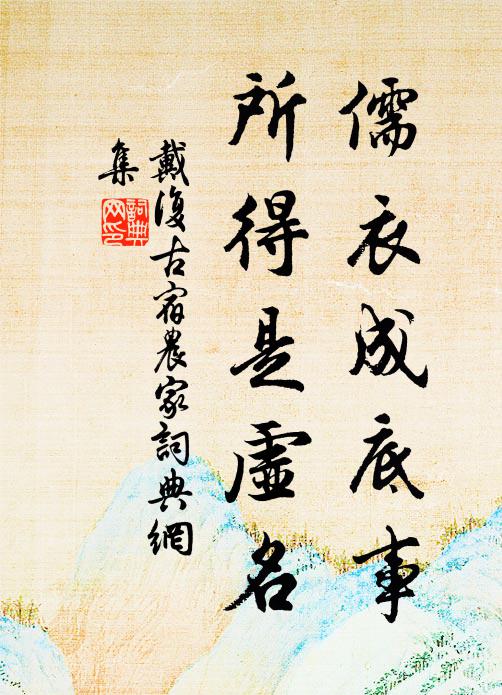 儒衣成底事
所得是虛名
戴復古宿農家詞典網
集
詞典
网印